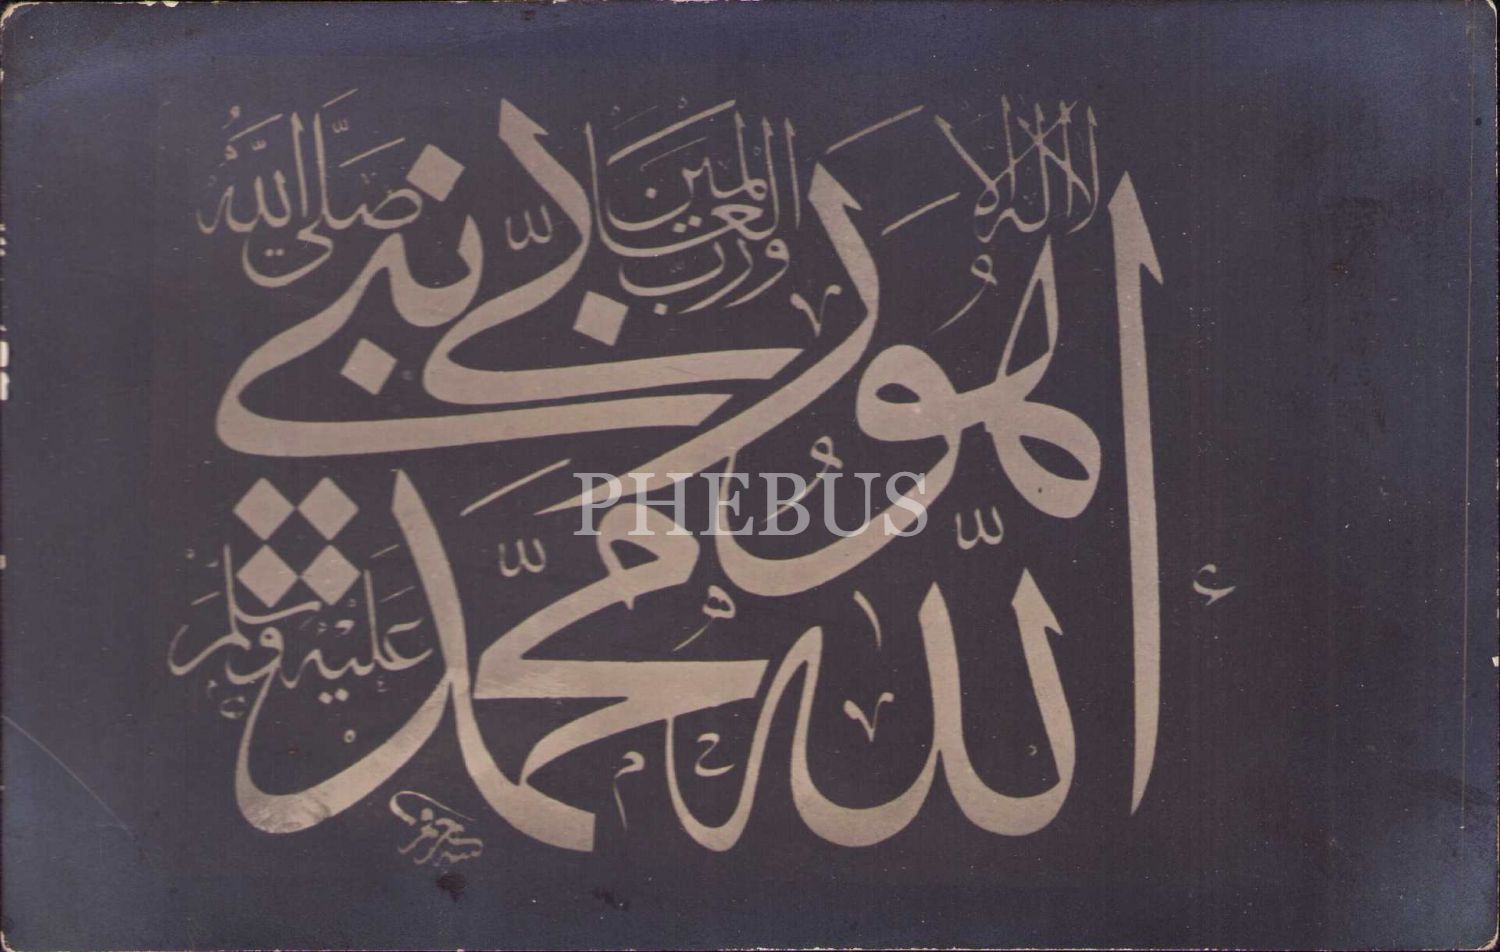 لا اله الا
هو
ورب العالمين
ربى
نبى
صلى الله
الله
محمد
عليه وسلم
PHEBUS